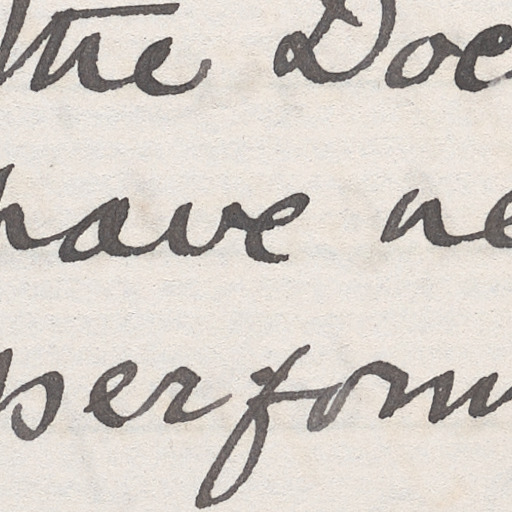 the Doc
have ne
perform